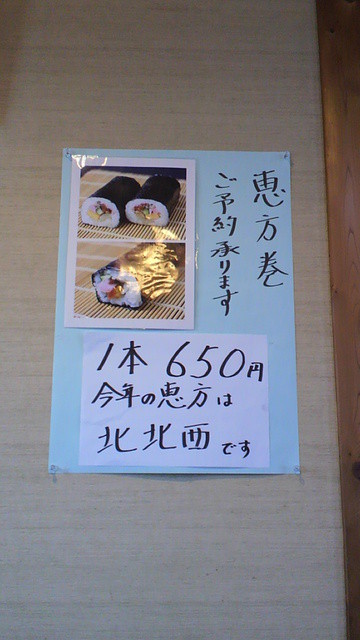 恵方巻
ご予約承ります
1本 650円
今年の恵方は
北北西です